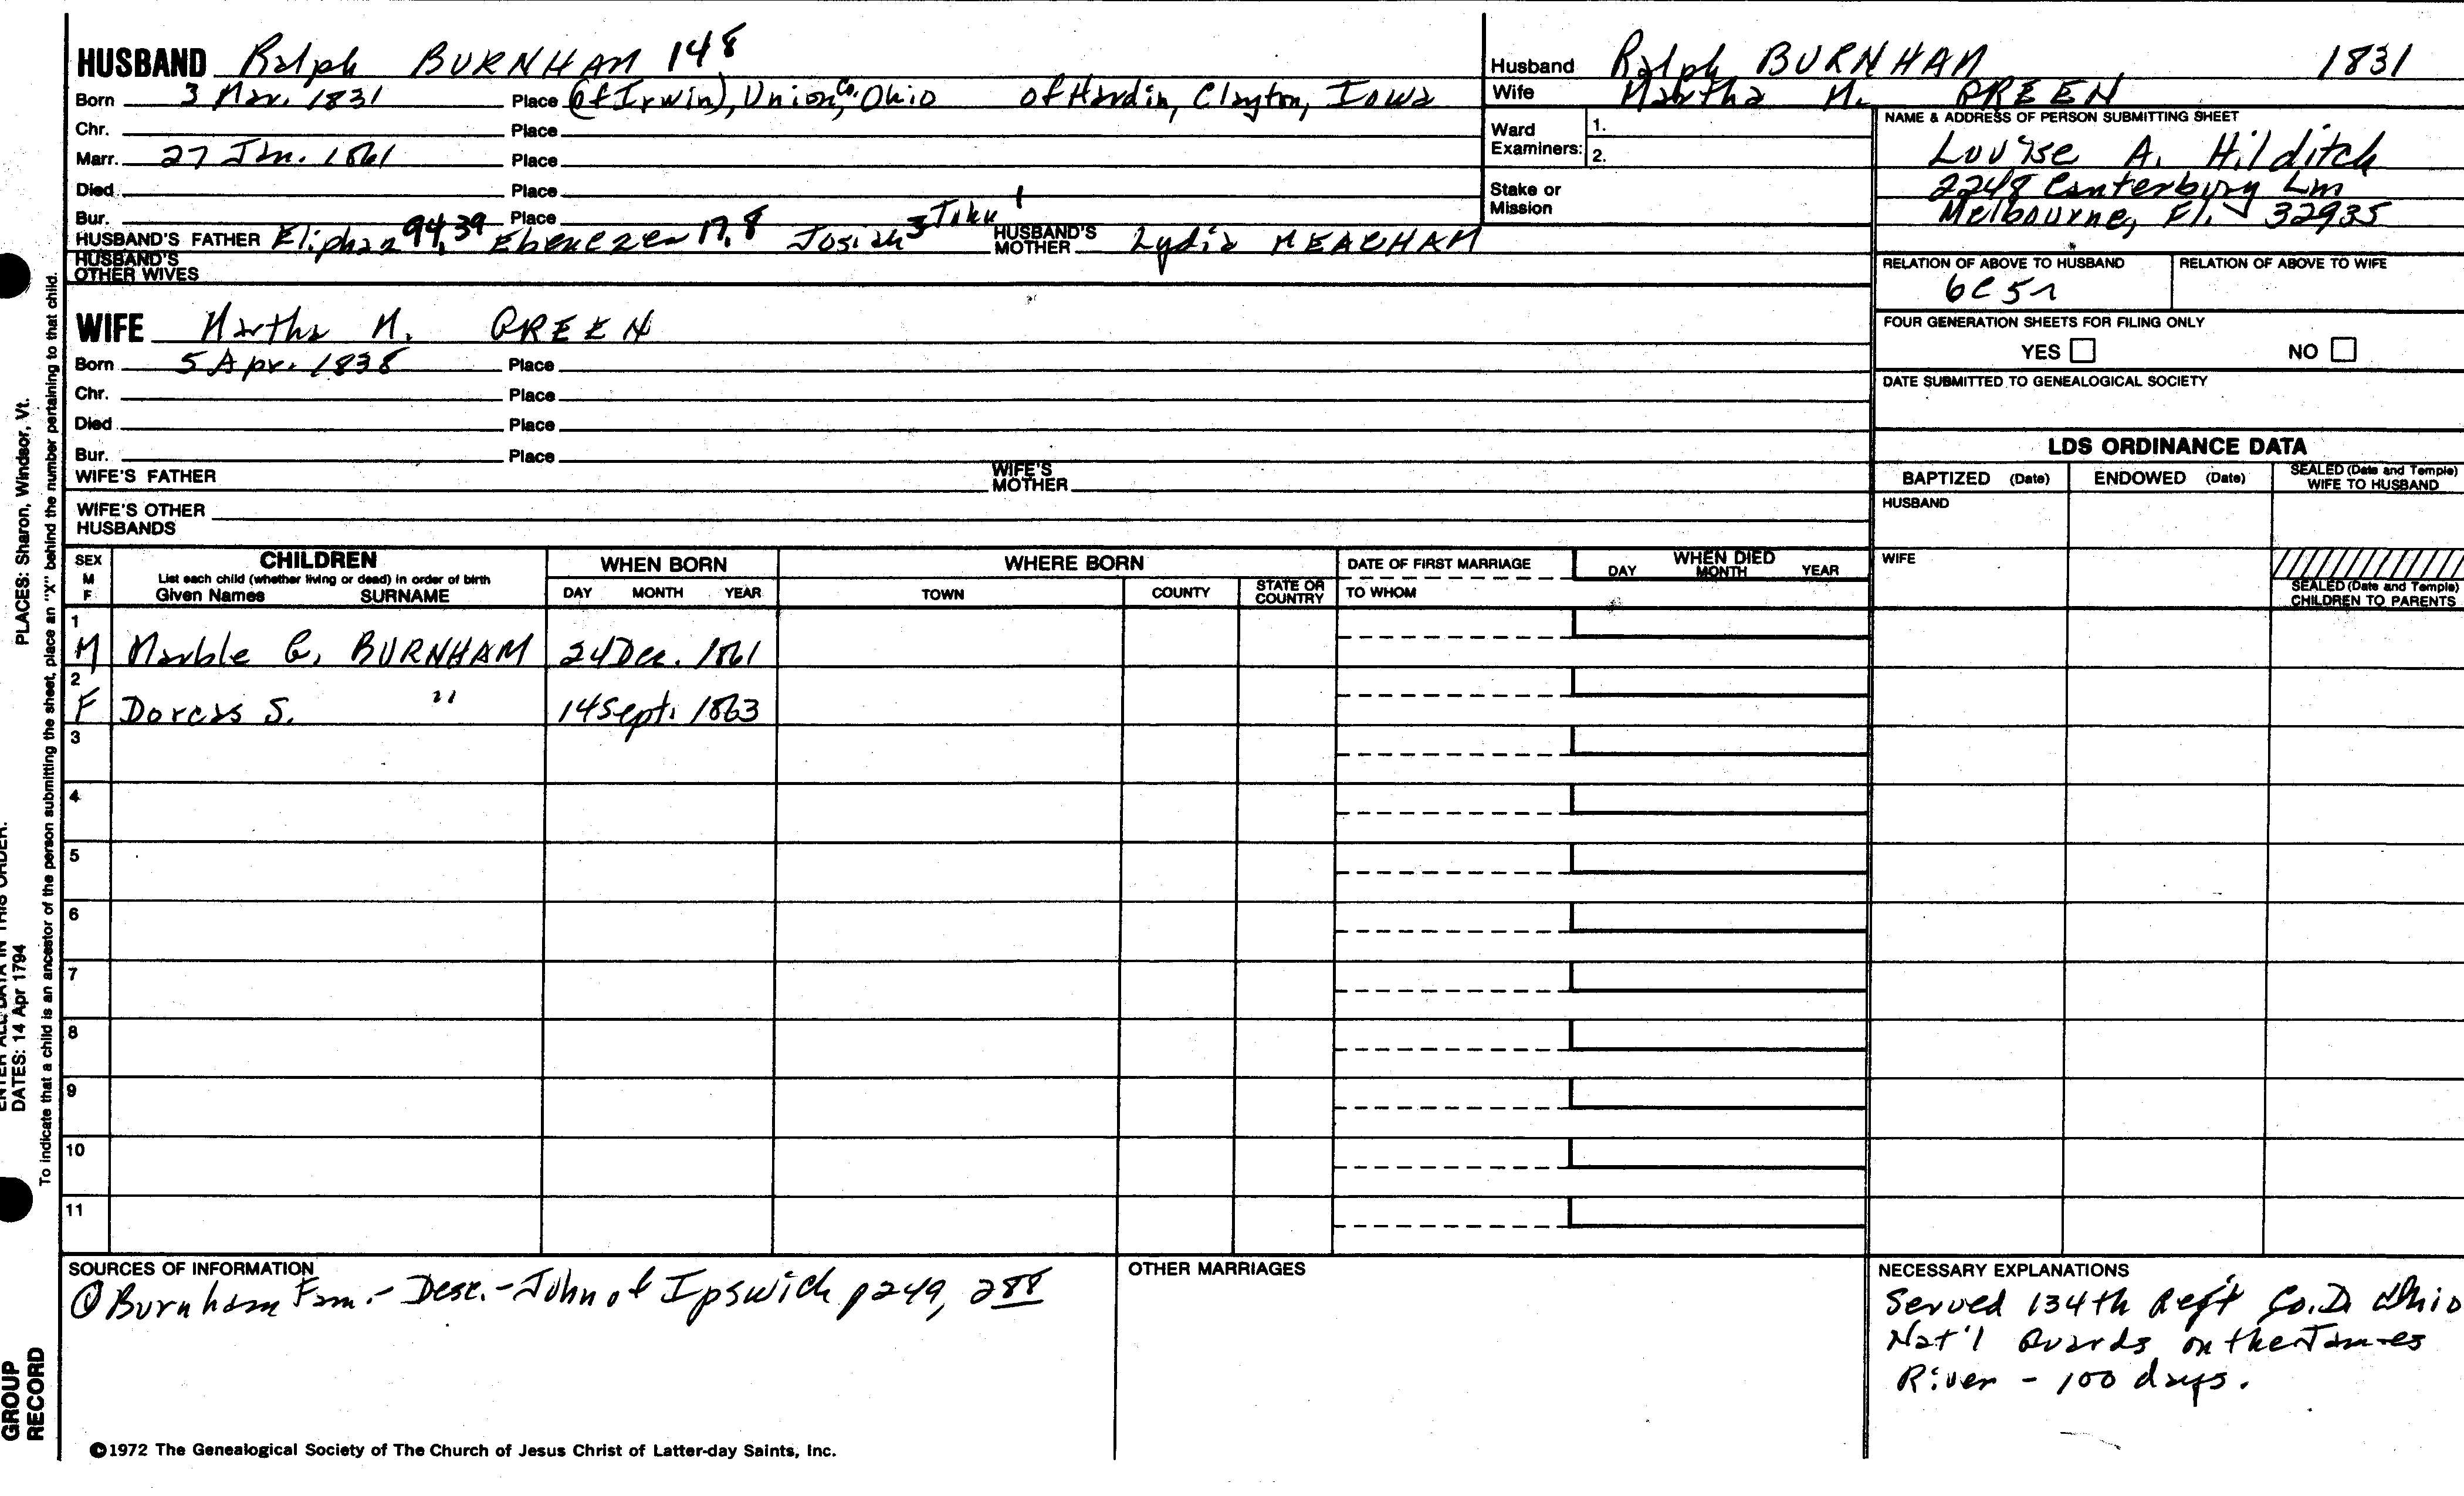 HUSBAND Ralph BURNHAM 148
Born 3 Mar. 1831 Place (of Irwin), Union Co., Ohio of Hardin, Clayton, Iowa
Chr. Place
Marr. 27 Jan. 1861 Place
Died Place
Bur. Place
HUSBAND'S FATHER Eliphaz 94, 39 Ebenezer 17, 8 Josiah 3 John 1 HUSBAND'S MOTHER Lydia MEACHAM
HUSBAND'S OTHER WIVES
WIFE Martha M. GREEN
Born 5 Apr. 1838 Place
Chr. Place
Died Place
Bur. Place
WIFE'S FATHER WIFE'S MOTHER
WIFE'S OTHER HUSBANDS
Husband Ralph BURNHAM 1831
Wife Martha M. GREEN
Ward Examiners: 1.
2.
Stake or Mission
NAME & ADDRESS OF PERSON SUBMITTING SHEET
Louise A. Hilditch
2248 Canterbury Ln
Melbourne, Fl. 32935
RELATION OF ABOVE TO HUSBAND RELATION OF ABOVE TO WIFE
6C5r
FOUR GENERATION SHEETS FOR FILING ONLY
YES NO
DATE SUBMITTED TO GENEALOGICAL SOCIETY
LDS ORDINANCE DATA
BAPTIZED (Date) ENDOWED (Date) SEALED (Date and Temple) WIFE TO HUSBAND
HUSBAND
WIFE
SEALED (Date and Temple) CHILDREN TO PARENTS
SEX M F CHILDREN WHEN BORN WHERE BORN DATE OF FIRST MARRIAGE WHEN DIED
List each child (whether living or dead) in order of birth
Given Names SURNAME DAY MONTH YEAR TOWN COUNTY STATE OR COUNTRY TO WHOM DAY MONTH YEAR
1
M Marble G. BURNHAM 24 Dec. 1861
2
F Dorcas S. " 14 Sept. 1863
3
4
5
6
7
8
9
10
11
SOURCES OF INFORMATION
① Burnham Fam.- Desc.-John of Ipswich p 249, 288
OTHER MARRIAGES
NECESSARY EXPLANATIONS
Served 134th Reg't Co.D. Ohio
Nat'l Guards on the James
River - 100 days.
©1972 The Genealogical Society of The Church of Jesus Christ of Latter-day Saints, Inc.
PLACES: Sharon, Windsor, Vt.
To indicate that a child is an ancestor of the person submitting the sheet, place an "X" behind the number pertaining to that child.
ENTER ALL DATA IN THIS ORDER:
DATES: 14 Apr 1794
GROUP
RECORD